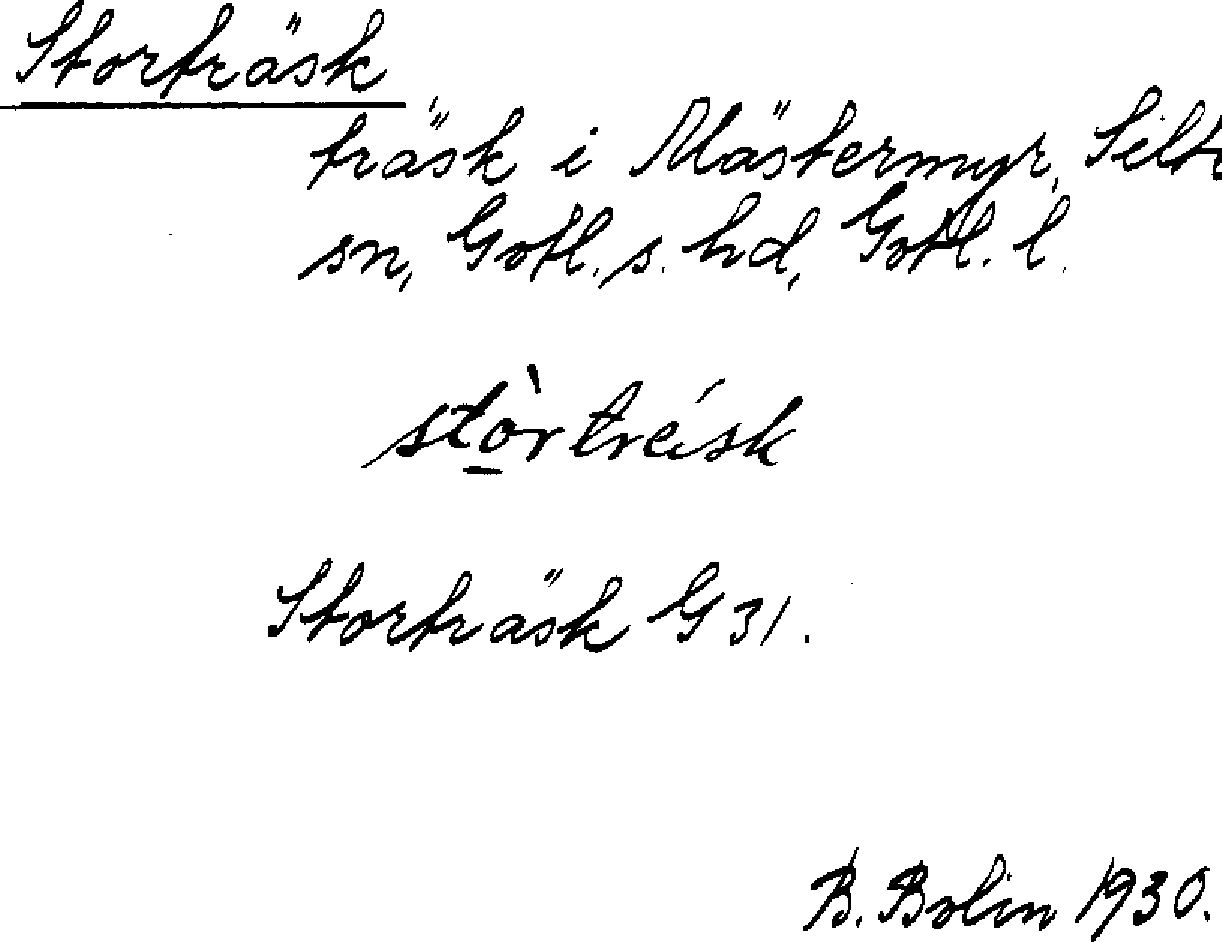 Storträsk
träsk i Mästermyr, Silte
sn, Gotl. s. hd, Gotl. l.
stò̠rtréisk
Storträsk G 31.
B. Bolin 1930.